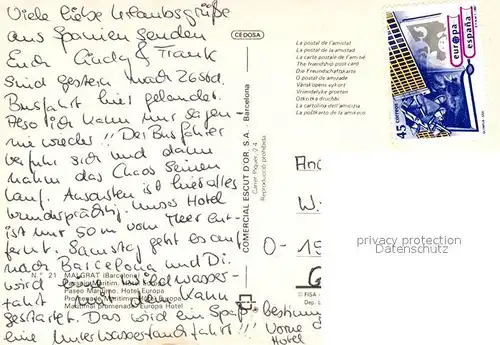 Viele liebe Urlaubsgrüße
aus Spanien senden
Euch Cindy & Frank
Sind gestern nach 26std.
Busfahrt hier gelandet.
Also ich kann nur sagen
nie wieder!! Der Busfahrer
verfuhr sich und dann
nahm das Chaos seinen
Lauf. Ansonsten ist hier alles
wunderprächtig. Unser Hotel
ist nur 50 m vom Meer ent-
fernt. Samstag geht es auf
nach Barcelona und Di.
wird eine Wildwasser-
fahrt mit dem Kanu
gestartet. Das wird ein Spaß - bestimmt
eine Unterwasserlandfahrt!!!
Vorne
Hotel
N.° 21 MALGRAT (Barcelona)
Paseo Marítimo. Hotel Europa
Promenade Maritime. Hôtel Europa
Maritimal promenade. Europa Hotel
CEDOSA
COMERCIAL ESCUT D'OR, S.A. - Barcelona
Carrer Piquer, 24
Reproducció prohibida
La postal de l'amistat
La postal de la amistad
La carte postale de l'amitié
The friendship post-card
Die Freundschaftskarte
O postal da amizade
Vänskapens vykort
Vriendelijke groeten
La cartolina dell'amicizia
© FISA
Dep. L
45 CORREOS
europa
españa
O - 15
privacy protection
Datenschutz